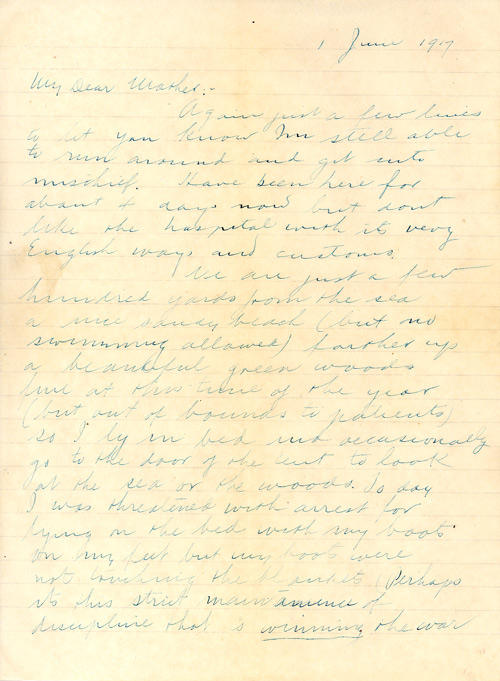 1 June 1917
My Dear Mother:-
Again just a few lines
to let you know I'm still able
to run around and get into
mischief. Have been here for
about 4 days now but dont
like the hospital with its very
English ways and customs.
We are just a few
hundred yards from the sea
a nice sandy beach (but no
swimming allowed) farther up
a beautiful green woods
fine at this time of the year
(but out of bounds to patients)
so I ly in bed and occasionally
go to the door of the tent to look
at the sea or the woods. To day
I was threatened with arrest for
lying on the bed with my boots
on my feet but my boots were
not touching the blankets. (Perhaps
its this strict maintainence of
discipline that is winning the war